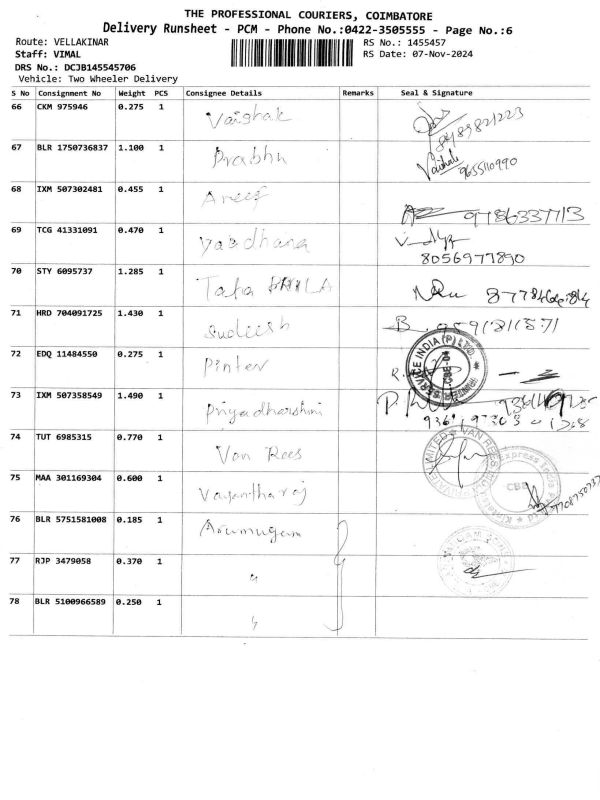 THE PROFESSIONAL COURIERS, COIMBATORE
Delivery Runsheet - PCM - Phone No.:0422-3505555 - Page No.:6
Route: VELLAKINAR
RS No.: 1455457
Staff: VIMAL
RS Date: 07-Nov-2024
DRS No.: DCJB145545706
Vehicle: Two Wheeler Delivery
S No Consignment No Weight PCS Consignee Details Remarks Seal & Signature
66 CKM 975946 0.275 1 Vaishak 8489821223
67 BLR 1750736837 1.100 1 Prabhu Vaishak 9655110990
68 IXM 507302481 0.455 1 Areef 9786337713
69 TCG 41331091 0.470 1 Yasdhana
8056977890
70 STY 6095737 1.285 1 Taha
71 HRD 704091725 1.430 1 Sudiesh B.
72 EDQ 11484550 0.275 1 Pinter
SERVICE INDIA (P) LTD.
73 IXM 507358549 1.490 1 Priyadharshini
74 TUT 6985315 0.770 1 Van Rees
LIMITED ★ VAN REES
75 MAA 301169304 0.600 1 Vasantharaj
Express India
CBE
7708750737
76 BLR 5751581008 0.185 1 Arumugam
77 RJP 3479058 0.370 1 "
78 BLR 5100966589 0.250 1 "